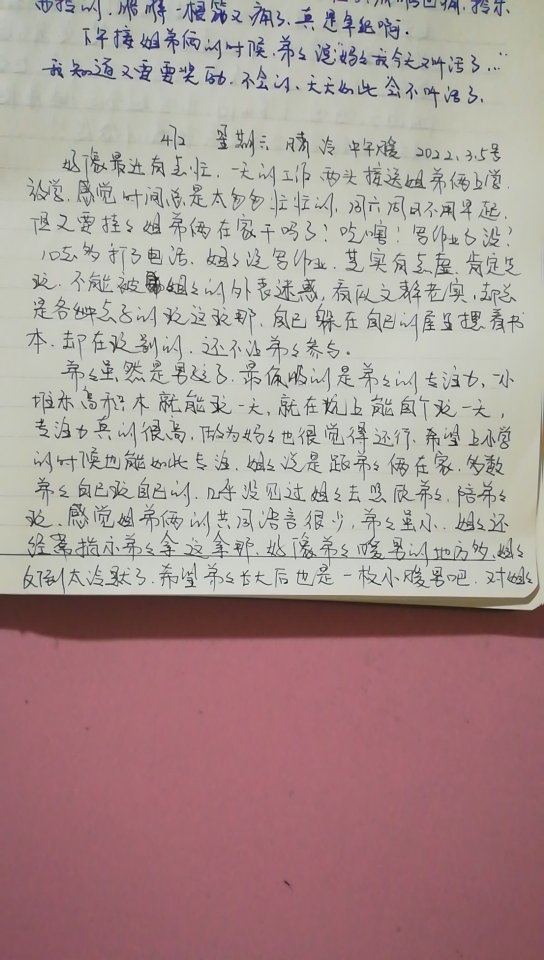 下午接姐弟俩的时候.弟弟说妈妈我今天又叫活了…
我知道又要要奖励.不会的.天天如此会不叫活了.
星期六 晴 冷 中午暖 2022.3.5号
好像最近有点忙.一天的工作两头接送姐弟俩上学.
放学.感觉时间总是太匆匆忙忙的.周六周日不用早起.
但又要挂念姐弟俩在家干吗了?吃啥!写作业了没?
10点多打了电话.姐姐说写作业.其实有点虚.肯定是
玩.不能被姐姐的外表迷惑.看似文静老实.却总
是各种点子的玩这玩那.自己躲在自己的屋里想看书
本.却在玩别的.还不让弟弟参与.
弟弟虽然是男孩子.最佩服的是弟弟的专注力.一小
堆乐高积木就能玩一天.就在炕上能自个玩一天.
专注力真的很高.做为妈妈也很觉得还行.希望上小学
的时候也能如此专注.姐姐说是跟弟弟俩在家.多数
弟弟自己玩自己的.几乎没见过姐姐去照顾弟弟.陪弟弟
玩.感觉姐弟俩的共同语言很少.弟弟虽小.姐姐还
经常指示弟弟拿这拿那.好像弟弟暖男的地方多.姐姐
反到太冷默了.希望弟弟长大后也是一枚小暖男吧.对姐姐